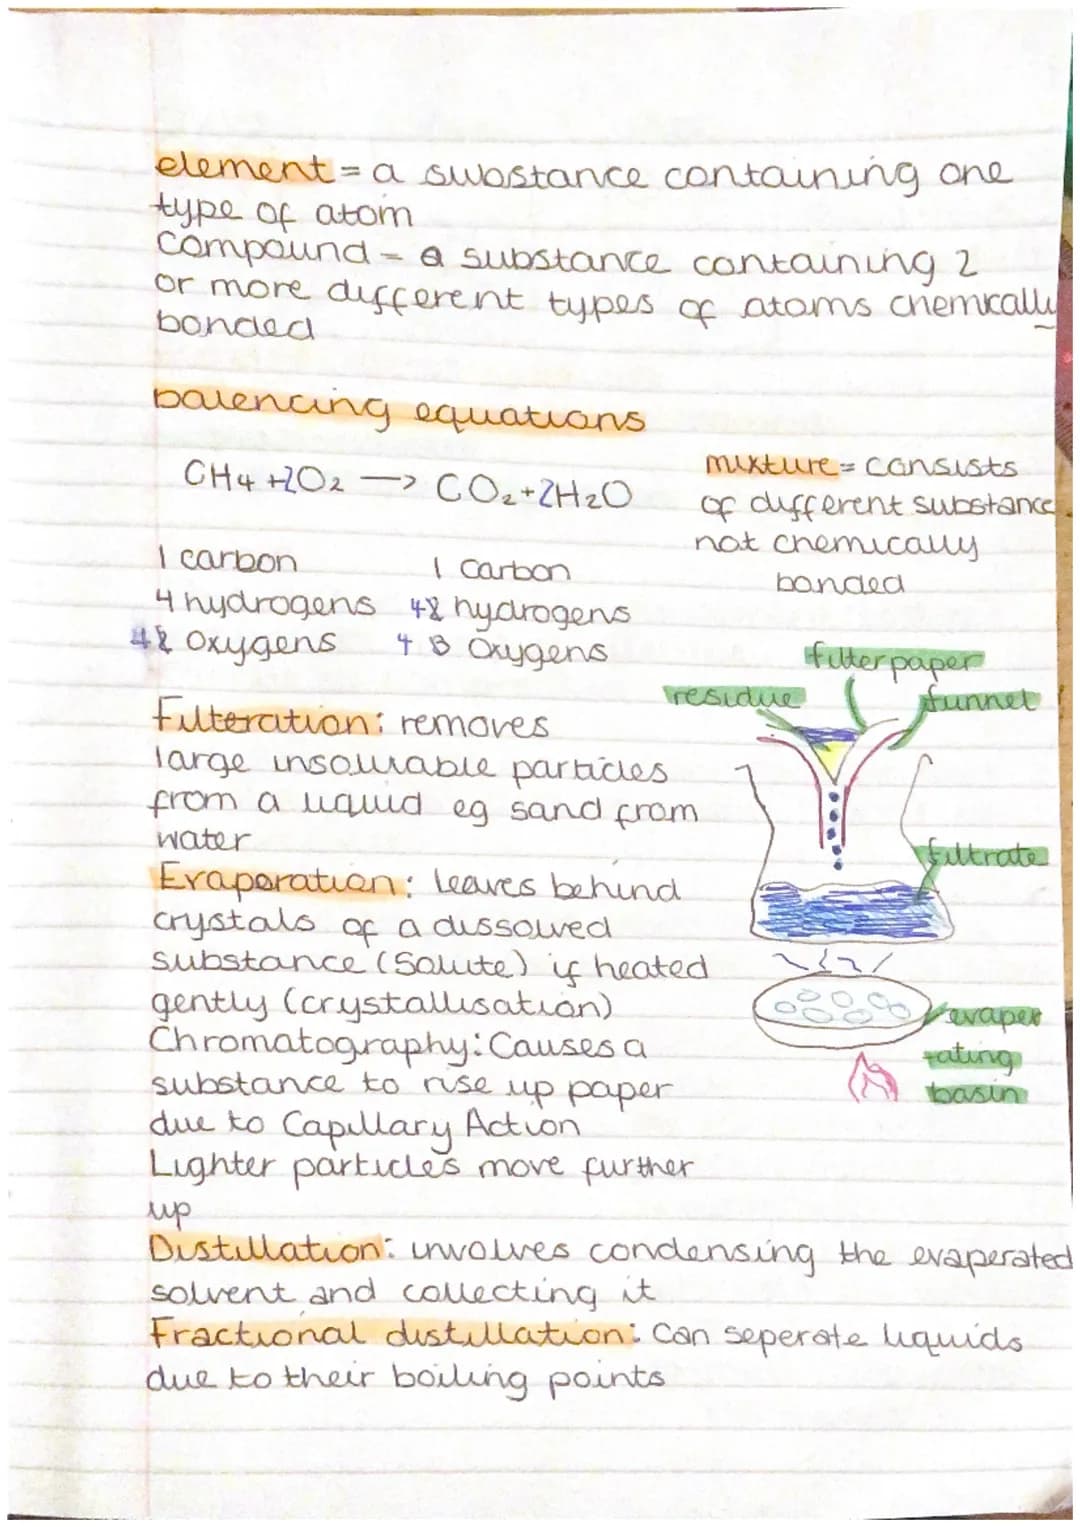 element = a substance containing one
type of atom
Compound - a substance containing 2
or more different types of atoms chemically
bonded
balencing equations
CH4 +2O2 → CO2+2H2O
mixture = consists
of different substance
not chemically
bonded
1 carbon 1 carbon
4 hydrogens 4 2 hydrogens
4 2 oxygens 4 3 Oxygens
filter paper
residue funnel
Filteration: removes
large insoluable particles
from a liquid eg sand from
water
filtrate
Evaporation: leaves behind
crystals of a dissolved
substance (Solute) if heated
gently (crystallisation)
evaper
ating
basin
Chromatography: Causes a
substance to rise up paper
due to Capillary Action
Lighter particles move further
up
Distillation: involves condensing the evaperated
solvent and collecting it
Fractional distillation: Can seperate liquids
due to their boiling points